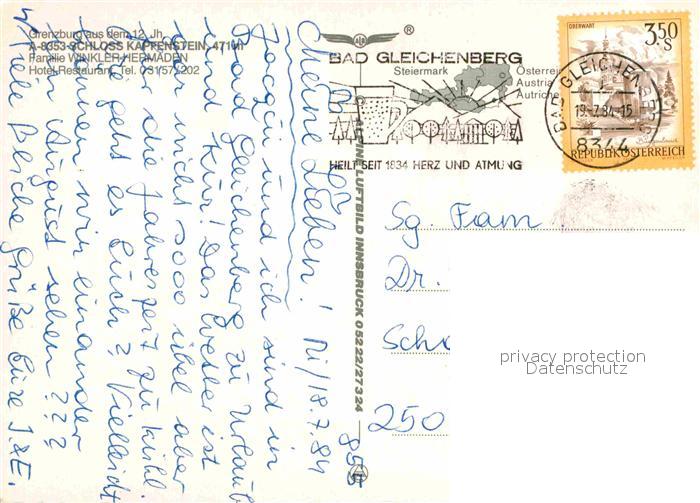 Grenzburg aus dem 12. Jh.
A-8353-SCHLOSS KAPFENSTEIN, 471 m
Familie WINKLER-HERMADEN
Hotel-Restaurant, Tel. 03157/202
ALPINE LUFTBILD INNSBRUCK 05222/27324
BAD GLEICHENBERG
Steiermark
Österrei
Austria
Autriche
HEILT SEIT 1834 HERZ UND ATMUNG
BAD GLEICHENBERG
19.-7.84-15
8344
OBERWART
3,50
S
REPUBLIK ÖSTERREICH
Meine Lieben! Mi/18.7.84
und ich sind in
Bad Gleichenberg zu Urlaub
und Kur! Das Wetter ist
gar nicht sooo übel aber
für die Jahreszeit zu kühl.
Wie geht es Euch? Vielleicht
können wir einander
im August sehen ???
Viele herzliche Grüße Eure I&E.
855
Sg. Fam.
Dr.
Sch
250
privacy protection
Datenschutz